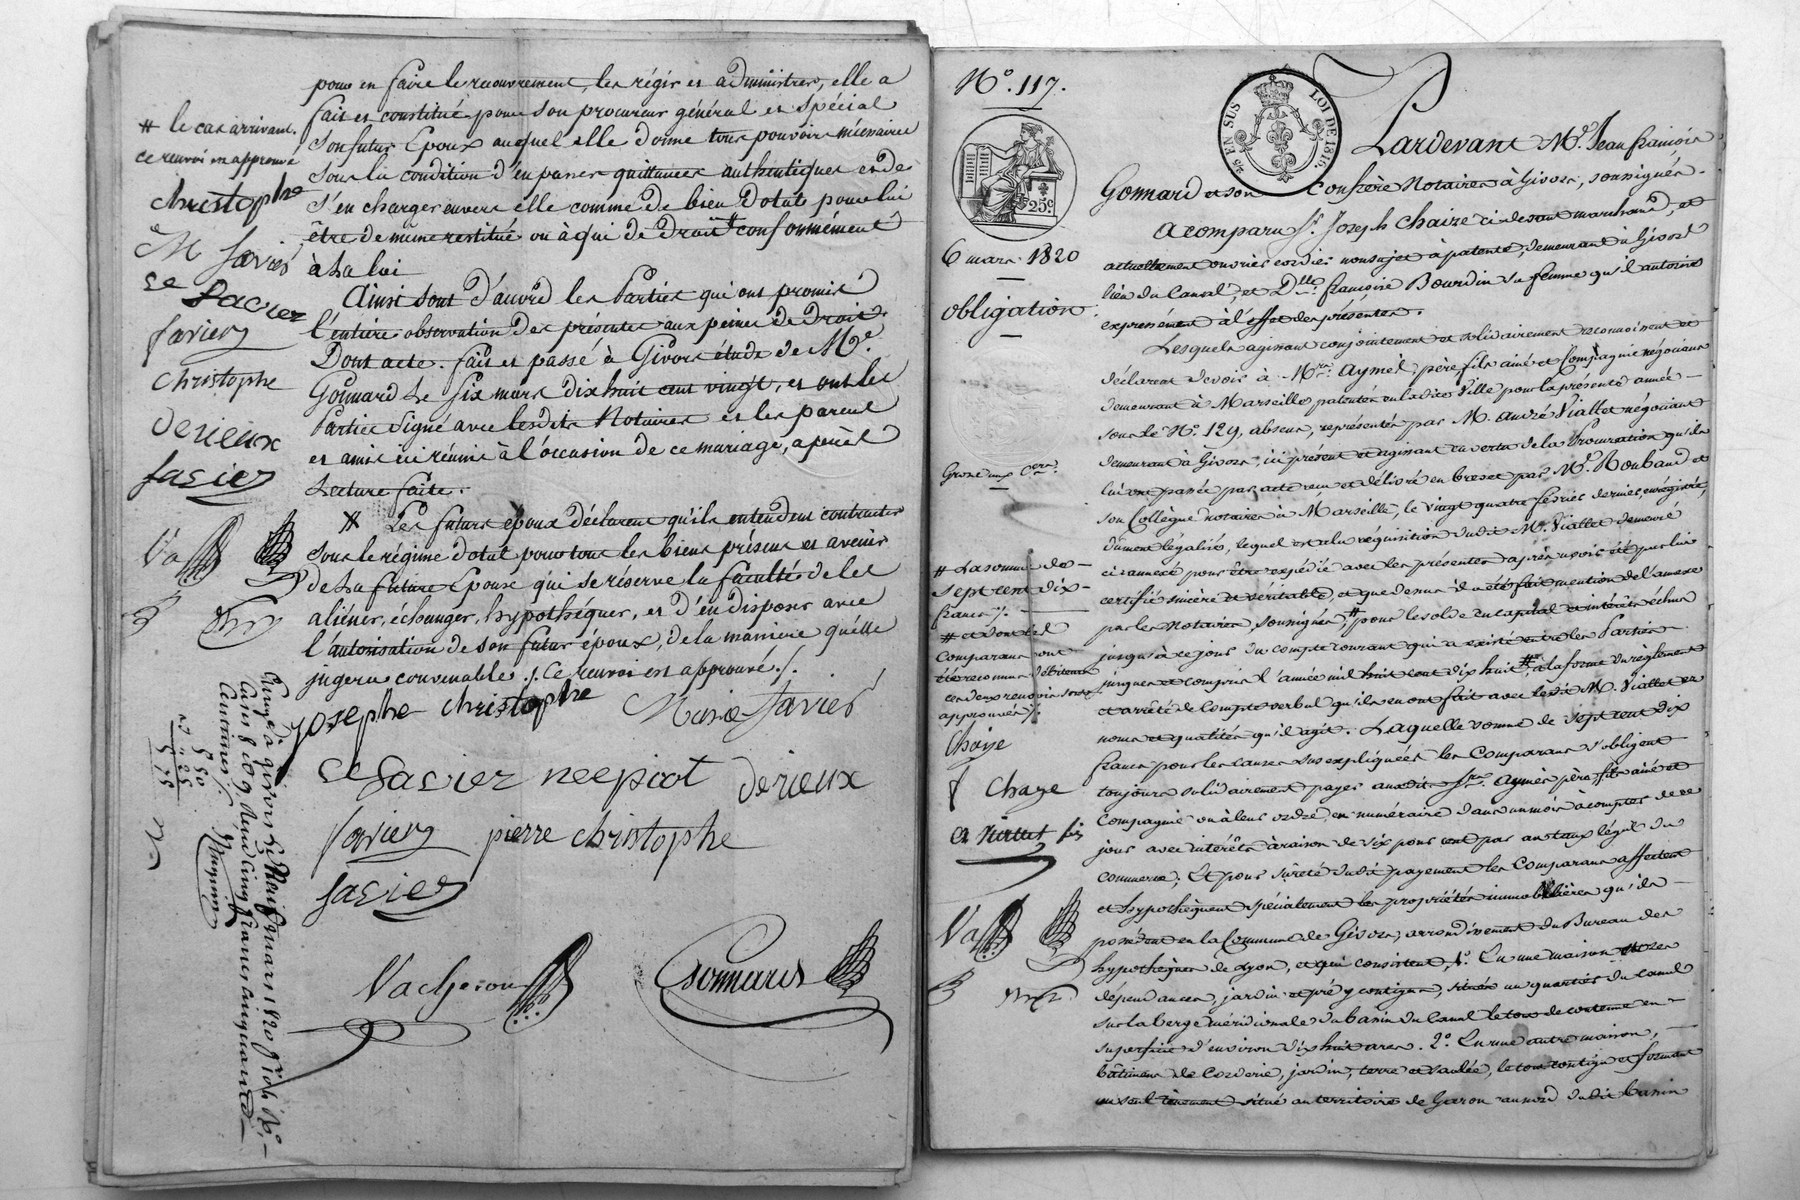 pour en faire le recouvrement, les régir et administrer, elle a
fait et constitué pour son procureur général et spécial
son futur Epoux auquel elle donne tous pouvoirs nécessaires
sous la condition d'en passer quittances authentiques et de
s'en charger envers elle comme de bien dotal pour lui
être de même restitué ou à qui de droit # conformément
à la loi
Ainsi sont d'accord les Parties qui ont promis
l'entière observation des présentes aux peines de droit.
Dont acte. fait et passé à Givors étude de Me.
Gonnard le six mars dix huit cent vingt, et ont les
Parties signé avec lesdits Notaires et les parens
et amis ici réunis à l'occasion de ce mariage, après
Lecture faite.
# Les futurs époux déclarent qu'ils entendent contracter
sous le régime dotal pour tous les biens présens et avenir
de la future Epouse qui se réserve la faculté de les
aliéner, échanger, hypothéquer, et d'en disposer avec
l'autorisation de son futur époux, de la manière qu'elle
jugera convenable ./. Ce renvoi est approuvé ./.
josephe christophe Marie Favier
ce favier nee picot derieux
favier pierre christophe
favier
Vacheron Gonnard
# le cas arrivant.
ce renvoi en approuvé
christophe
M favier
ce favier
favier
christophe
derieux
favier
Va
Enregé à givors le
mars 1820 fo
cent
centimes ./.
5 50
5
No. 117.
25 EN SUS
LOI DE 1816.
25c
6 mars 1820
obligation.
Pardevant Me. Jean françois
Gonnard et son Confrère Notaires à Givors, soussignés.
A comparu Sr. Joseph Chaize ci devant marchand, et
actuellement ouvrier cordier non sujet à patente, demeurant à Givors
lieu du Canal, et Dlle. françoise Bourdin sa femme qu'il autorise
expressément à l'effet des présentes.
Lesquels agissant conjointement et solidairement reconnoissent et
déclarent devoir à Mrs. Aymès père, fils ainé et Compagnie négocians
demeurant à Marseille patentés en ladite Ville pour la présente année
sous le No. 129, absens, représentés par M. André Viallet négociant
demeurant à Givors, ici présent et agissant en vertu de la Procuration qu'ils
lui ont passée par acte reçu et délivré en brevet par Me. Roubaud et
son Collègue notaires à Marseille, le vingt quatre février dernier, enregistré,
dûment légalisé, lequel est à la réquisition dudit Mr. Viallet demeuré
ci annexé pour être expédié avec les présentes après avoir été par lui
certifié sincère et véritable, et que dessus il a été fait mention de l'annexe
par les Notaires, soussignés, # pour le solde en capital et intérêts échus
jusqu'à ce jour du compte courant qui a existé entre les Parties
jusques et compris l'année mil huit cent dix huit, # à la forme du règlement
et arrêté de compte verbal qu'ils en ont fait avec ledit M. Viallet ès
noms et qualités qu'il agit. Laquelle somme de sept cent dix
francs pour les causes sus expliquées les Comparans s'obligent
toujours solidairement payer auxdits Srs. Aymès père, fils ainé et
Compagnie ou à leur ordre, en numéraire dans un mois à compter de ce
jour avec intérêts à raison de six pour cent par an taux légal du
commerce; Et pour sûreté dudit payement les Comparans affectent
et hypothèquent spécialement les propriétés immobilières qu'ils
possèdent en la Commune de Givors, arrondissement du Bureau des
hypothèques de Lyon, et qui consistent, 1o. En une maison et ses
dépendances, jardin et pré y contigus, situés au quartier du canal
sur la berge méridionale du bassin du Canal le tout de contenue en
superficie d'environ dix huit ares. 2o. En une autre maison,
bâtiment de Corderie, jardin, terre et saulée, le tout contigu et formant
un seul tènement situé au territoire de Garon au nord dudit bassin
# La somme de
sept cent dix
francs ./.
# et dont les
comparans ont
été reconnus débiteurs
ces deux renvois sont
approuvés ./.
Chaize
f Chaze
A Viallet
Va